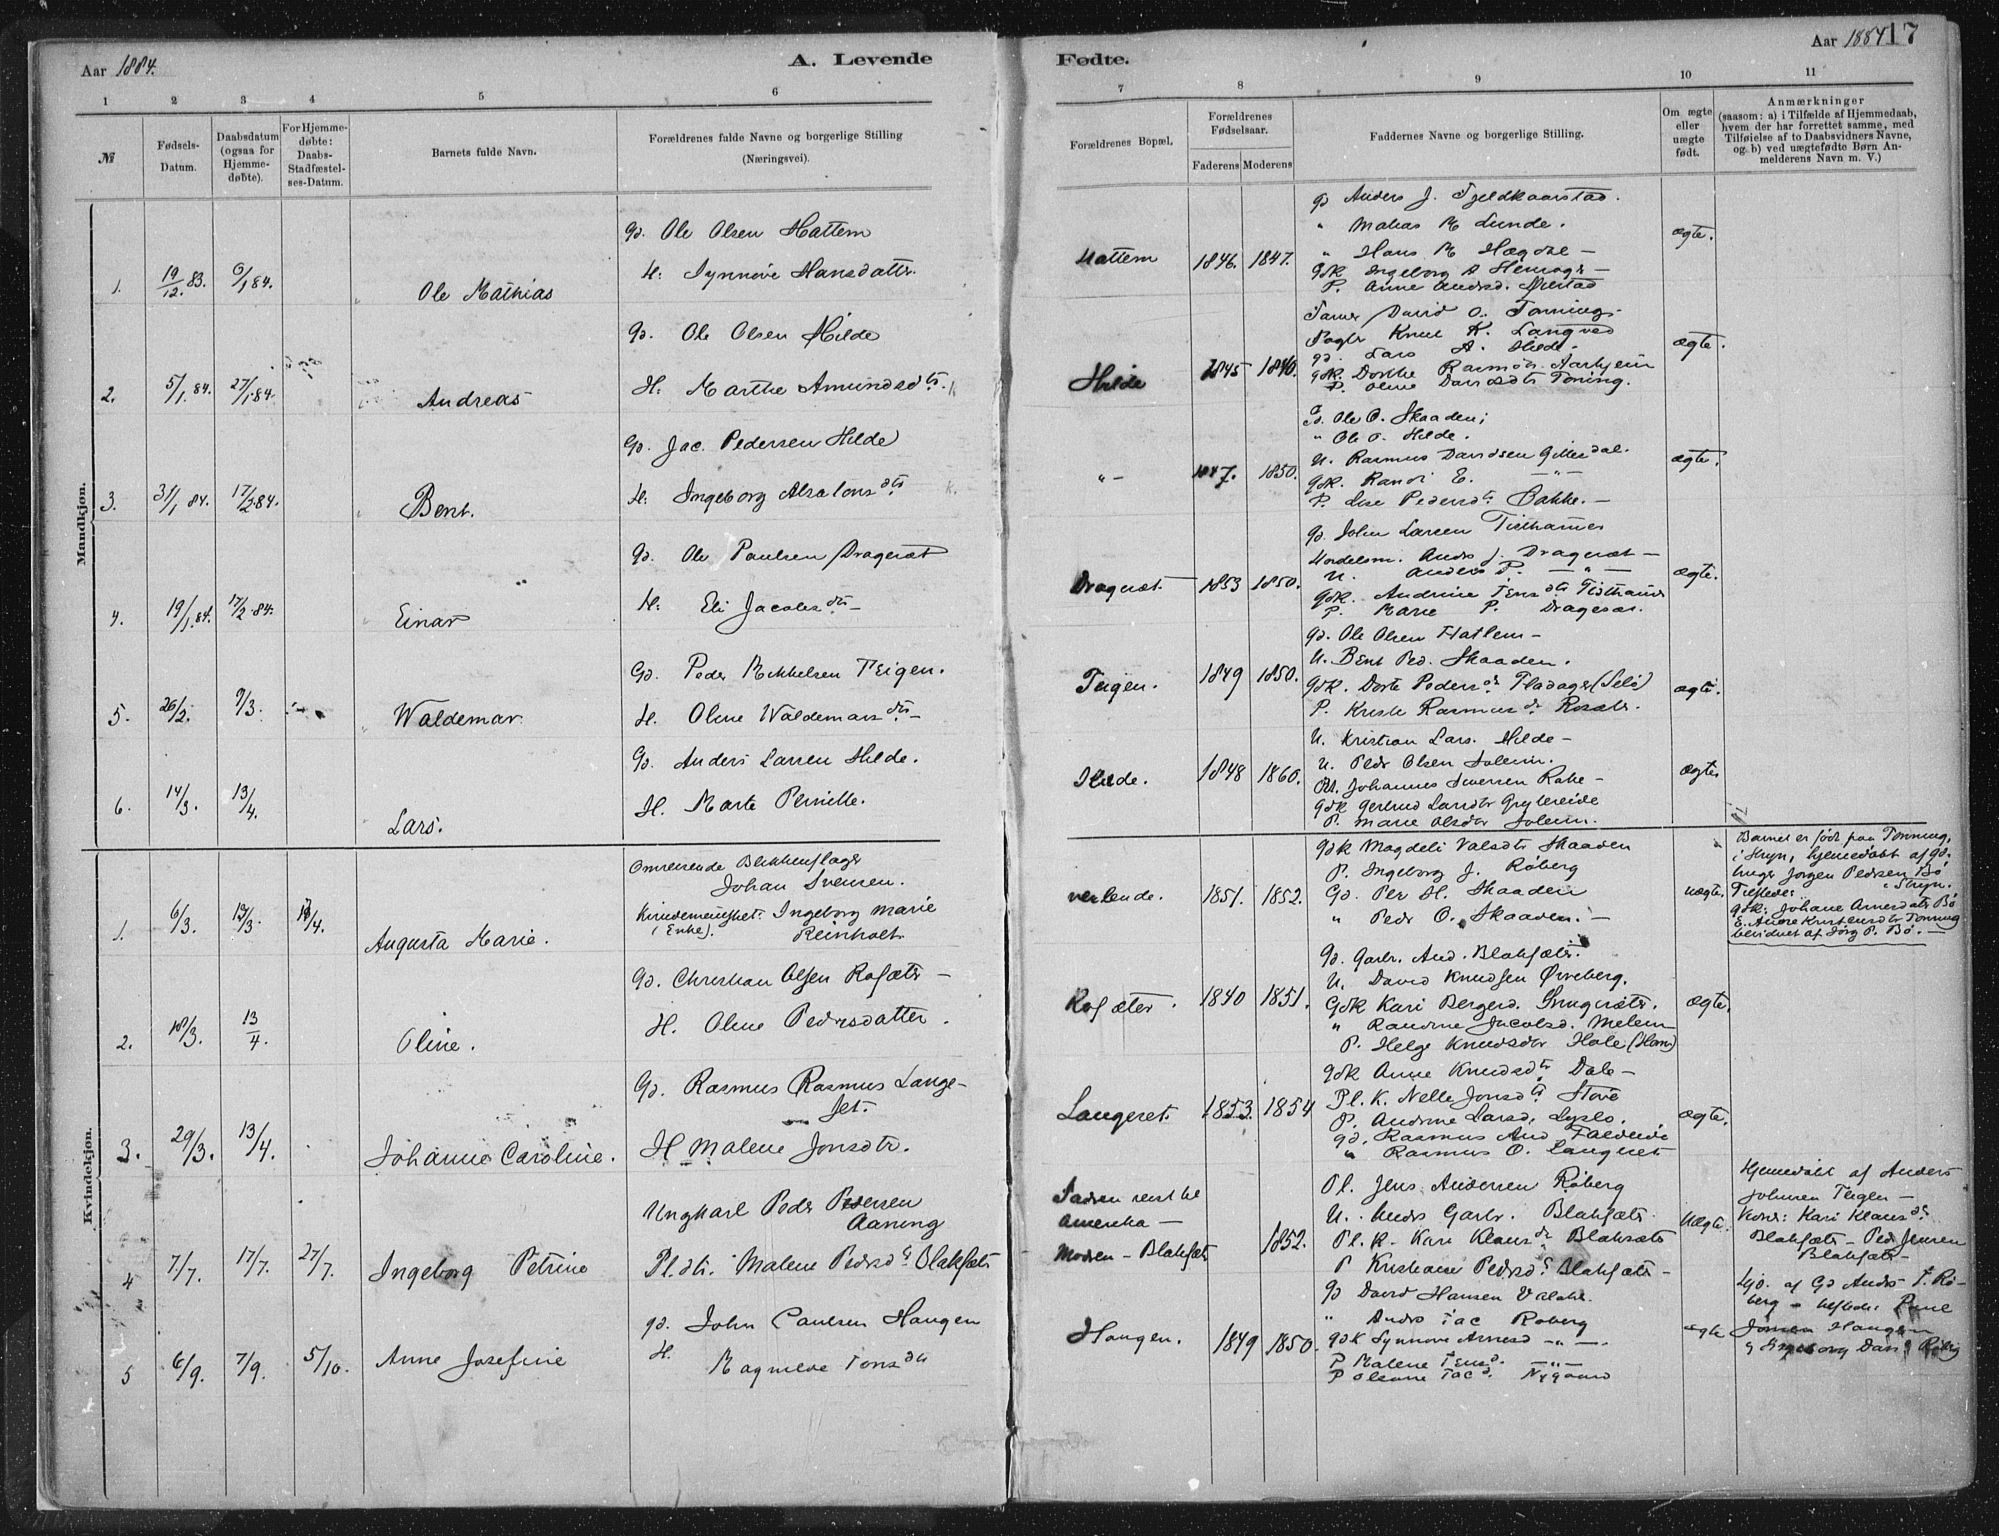 Aar 1884.
A. Levende
Fødte.
Aar 1884
17
1 2 3 4 5 6
7 8 9 10 11
№
Fødsels-
Datum.
Daabsdatum
(ogsaa for
Hjemme-
døbte).
For Hjemme-
døbte:
Daabs-
Stadfæstel-
ses-Datum.
Barnets fulde Navn.
Forældrenes fulde Navne og borgerlige Stilling
(Næringsvei).
Forældrenes Bopæl.
Forældrenes
Fødselsaar.
Faderens Moderens
Faddernes Navne og borgerlige Stilling.
Om ægte
eller
uægte
født.
Anmærkninger
(saasom: a) i Tilfælde af Hjemmedaab,
hvem der har forrettet samme, med
Tilføielse af to Daabsvidners Navne,
og b) ved uægtefødte Børn An-
melderens Navn m. V.)
Mandkjøn.
1. 19/12 83. 6/1 84. Ole Mathias
Gd. Ole Olsen Hattem
H: Synnøve Hansdatter.
Hattem 1846. 1847.
Gd Anders J. Fjeldkaarstad.
" Mathias M Lunde.
" Hans M Hægdal -
Gdk Ingeborg A
P. Anne Andsd. Øvrstad
ægte.
2. 5/1 84. 27/1 84. Andreas
Gd. Ole Olsen Hilde
H: Marthe Amundsdtr.
Hilde 1845 1840.
David O. Tonning
Knut K. Langved
Gd. Lars A. Hilde.
Gdk. Dorthe Rasmusdtr Aarhjem
P. Oline Davidsdtr Toning.
ægte.
3. 31/1 84. 17/2 84. Bent.
Gd. Jac. Pedersen Hilde
H: Ingeborg Absalonsdtr
" - 1847. 1850.
G. Ole O. Skaaden;
" Ole O. Hilde.
U. Rasmus Davidsen Gillesdal.
Gdk. Randi E. - " -
P. Lise Pedersdtr Bakke. -
ægte.
4. 19/1 84. 17/2 84. Einar
Gd. Ole Paulsen Dragesæt
H: Eli Jacobsdtr -
Dragesæt. 1853 1850.
Gd. John Larsen Tisthamer
Anders J. Dragesæt -
U. Anders P. - " -
Gdk. Andrine Jensdtr Tisthamer
P. Marie P. Dragesæt.
ægte.
5. 26/2. 9/3. Waldemar
Gd. Peder Mikkelsen Teigen.
H. Oline Waldemarsdtr -
Teigen. 1849 1850.
Gd. Ole Olsen Hatlem -
U. Bent Ped. Skaaden.
Gdk. Dorte Pedersdtr (Selø)
P. Kriste Rasmusdtr Rosæter.
ægte.
6. 14/3. 13/4. Lars.
Gd. Anders Larsen Hilde.
H. Marte Pernille.
Hilde. 1848 1860.
U. Kristian Lars. Hilde -
U. Pedr Olsen Solem.
Johannes Iversen Rake -
Gdk Gertrud Larsdtr Grytereide
P. Marie Olsdtr Solem.
ægte
Kvindekjøn.
1. 6/3. 12/3. 13/4. Augusta Marie.
Omreisende Blikkenslager
Johan Svensen.
Kvindemenisket: Ingeborg Marie
(Enke). Reinholt.
1851. 1852.
Gdk Magdeli Valsdtr Skaaden
P. Ingeborg J. Røberg
Gd. Per H. Skaaden
" Pedr O. Skaaden. -
uægte.
Barnet er født paa Tonning,
i Stryn, hjemedøbt af gd.
Jørgen Pedersen Bø
Tilstede: " Stryn.
Gdk: Johane Arnesdatr Bø
E. Anne Kristensdtr Tonning
bevidnet af Jørg P. Bø. -
2. 18/3. 13/4 Oline.
Gd. Christian Olsen Rosæter -
H. Oline Pedersdatter.
Rosæter. 1840 1851.
Gd. Garbr. And. Blaksæter.
U. David Knudsen Øvreberg.
Gdk Kari Bergerd.
" Randine Jacobsd. Melem
P. Helge Knudsdtr Hole (Horn)
ægte.
3. 29/3. 13/4. Johanne Caroline.
Gd. Rasmus Rasmus Lange-
set.
H Malene Jonsdtr.
Langeset. 1853. 1854
Gdk Anne Knudsdtr Dale -
Pl. K. Nelle Jonsdtr Støve
P. Andrine Larsd. Lyslo.
Gd. Rasmus And Faldeide
" Rasmus O. Langeset
ægte.
4 7/7. 17/7. 27/7. Ingeborg Petrine
Ungkarl Peder Pedersen
Aaning
Pl.dtr. Malene Pedrsdtr Blaksæt
Faderen reist til
Amerika -
Modren - Blaksæt 1852.
Pl. Jens Andersen Røberg
U. Anders Garbr. Blaksæt
Pl. K. Kari Klausdtr Blaksæt
P Kristiane Pedrsd. Blaksæt -
Uægte.
Hjemedøbt af Anders
Johnsen Teigen -
Vidner: Kari Klausdr
Blaksæt - Ped Jensen
Blaksæt -
5 6/9. 7/9. 5/10. Anne Josefine
Gd. John Paulsen Haugen
H. Magnilde Jonsdtr
Haugen. 1849 1850.
Gd David Hansen
" Anders Jac Røberg
Gdk Synnøve Arnesd - " -
P Malene Jensd. - " -
P Olsine Jacd. Nygaard
ægte
Hjd. af Gd Anders J. Rø-
berg - tilstede: Rane
Jonsen Haugen
& Ingeborg Dav. Røbg